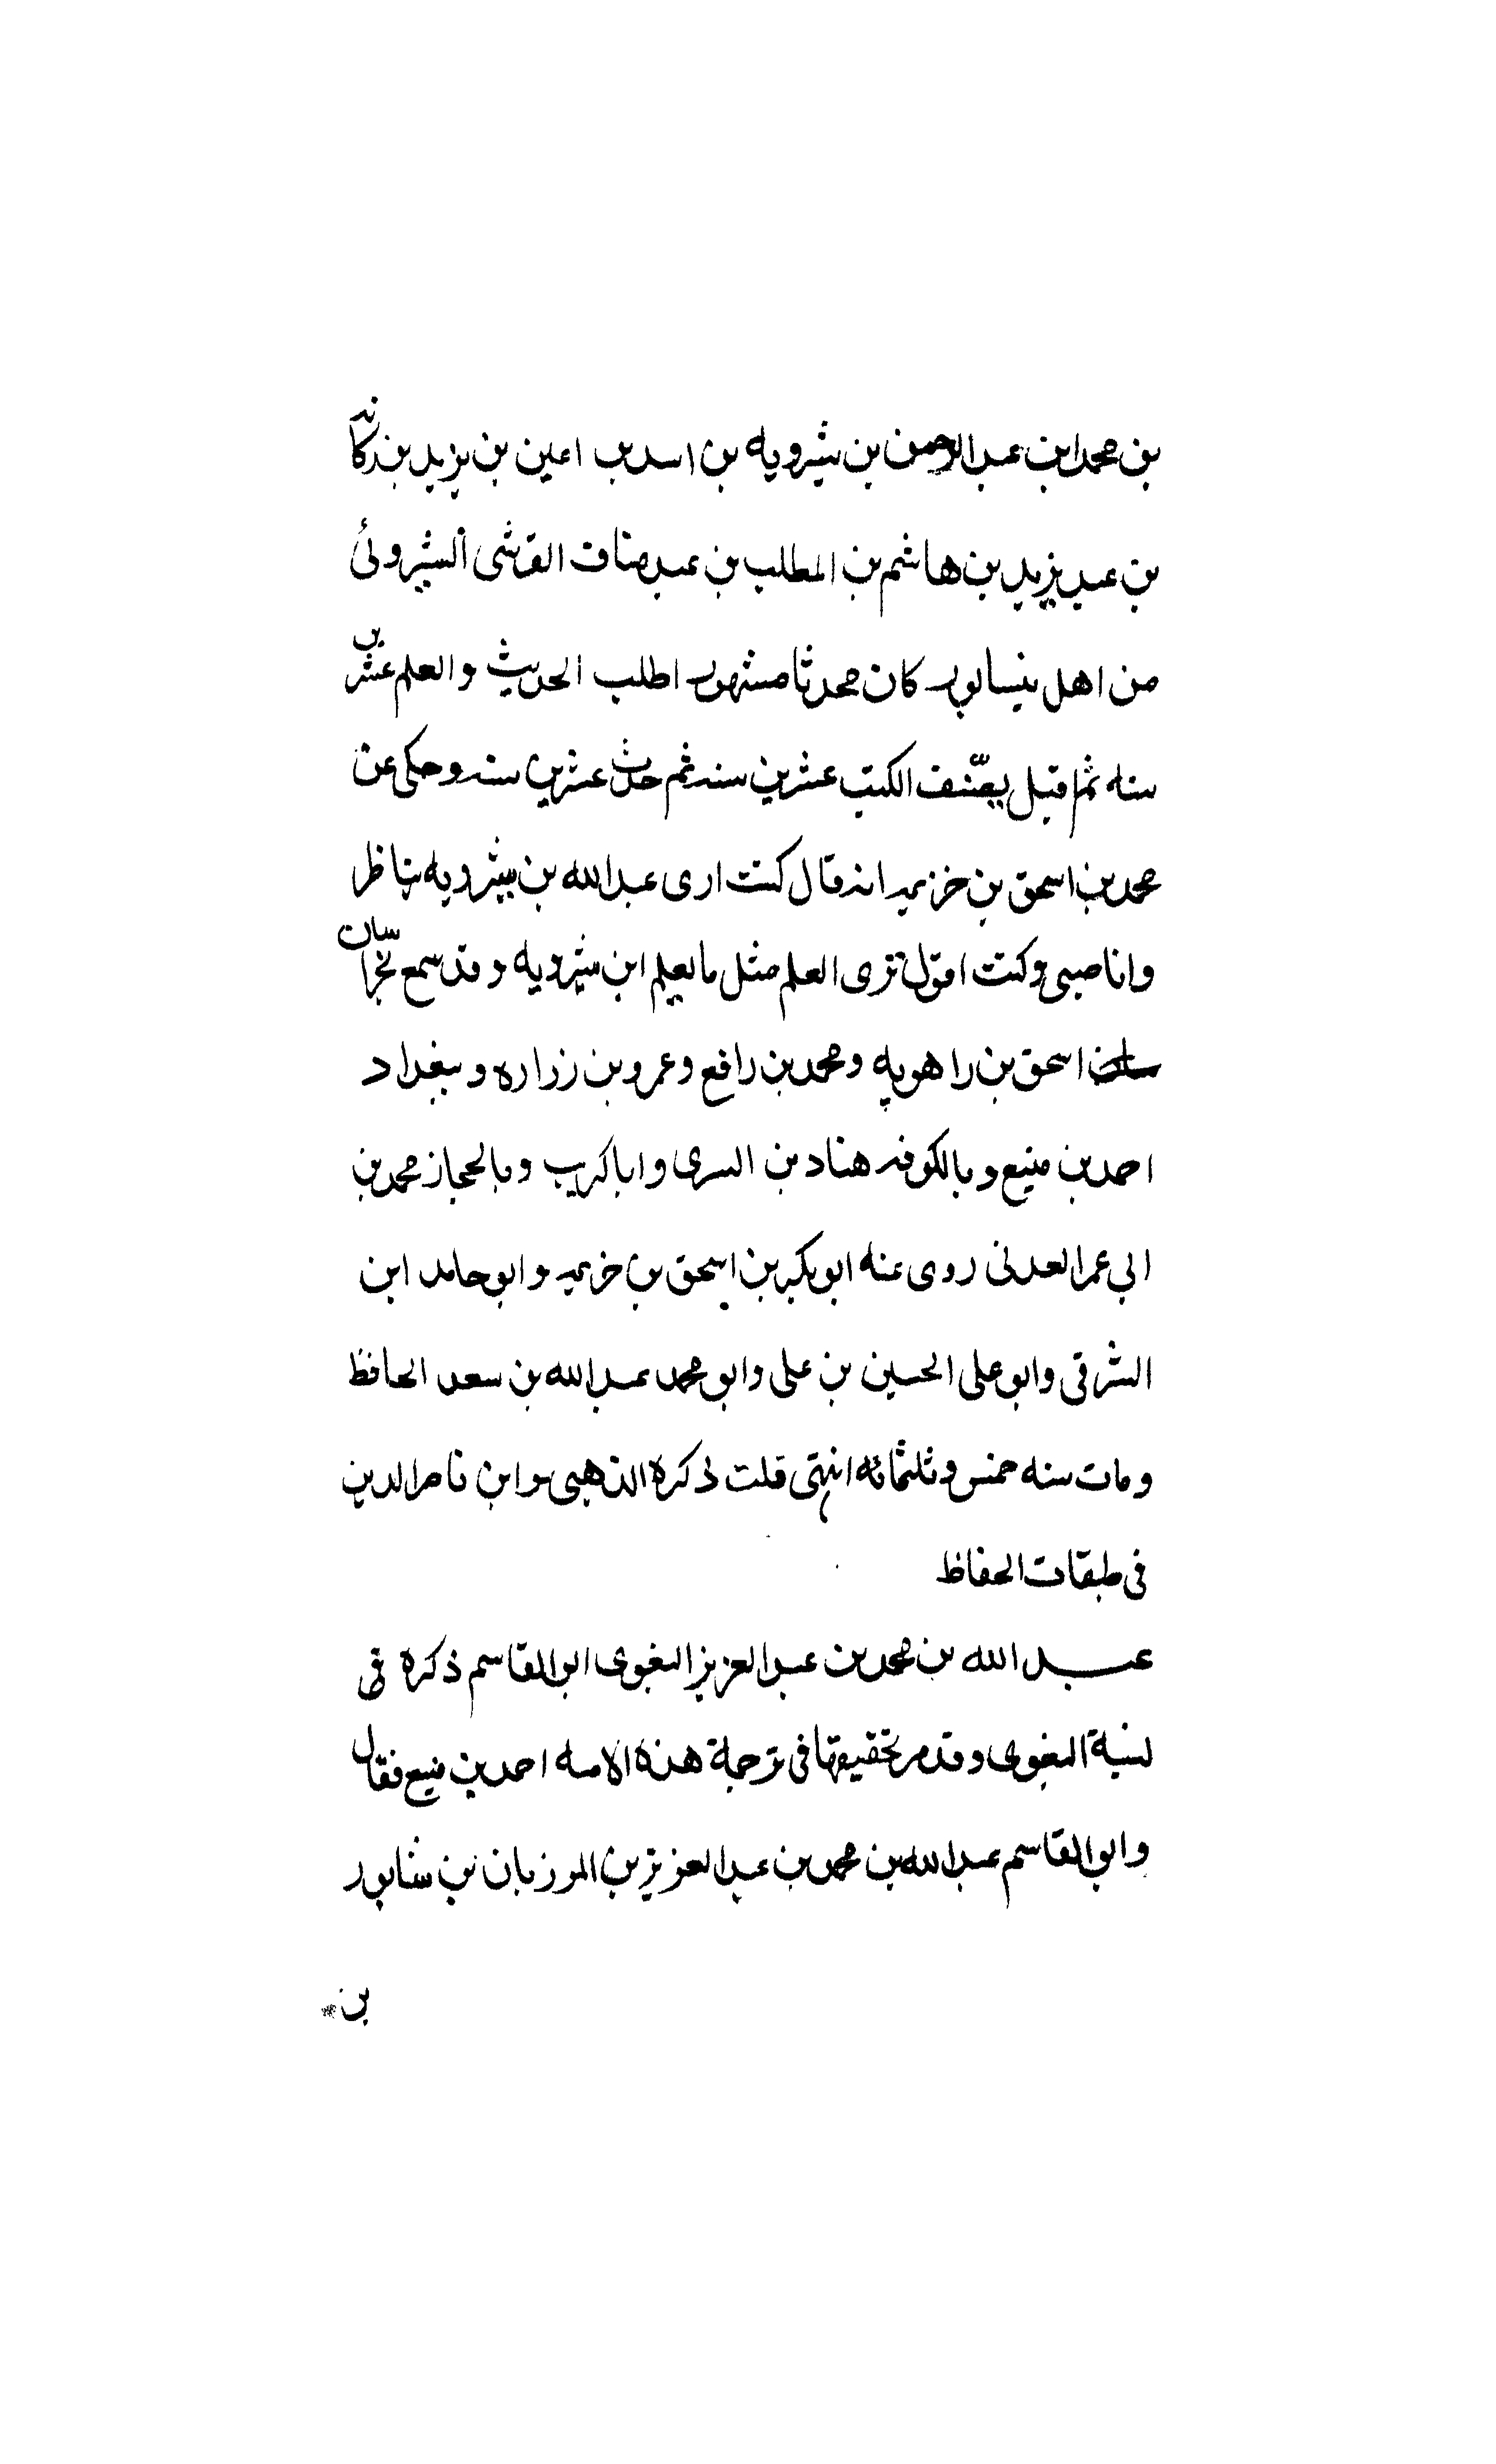 بن محمد ابن عبد الرحمن بن شيرويه بن اسد بن اعين بن يزيد بن ركانه
بن عبد يزيد بن هاشم بن المطلب بن عبد مناف القرشى الشيروئى
من اهل نيسابور كان محدثا مشهورا طلب الحديث والعلم عشرين
سنه ثم اقبل يصنف الكتب عشرين سنه ثم حدث عشرين سنه وحكى عن
محمد بن اسحق بن خزيمه انه قال كنت ارى عبد الله بن شيرويه يناظر
وانا صبى وكنت اقول ترى العلم مثل ما يعلم ابن شيرويه وقد سمع بخراسان
اسحق بن راهويه ومحمد بن رافع وعمرو بن زراره وببغداد
احمد بن منيع وبالكوفه هناد بن السرى وابا كريب وبالحجاز محمد بن
ابي عمر العدنى روى عنه ابو بكر بن اسحق بن خزيمه وابو حامد ابن
الشرقى وابو على الحسين بن على وابو محمد عبد الله بن سعد الحافظ
ومات سنه خمس وثلثمائه انتهى قلت ذكره الذهبى وابن ناصر الدين
فى طبقات الحفاظ
عبد الله بن محمد بن عبد العزيز البغوى ابو القاسم ذكره فى
نسبة البغوى وقد مر تحقيقها فى ترجمة هذه الامه احمد بن منيع فقال
وابو القاسم عبد الله بن محمد بن عبد العزيز بن المرزبان بن شابور
بن